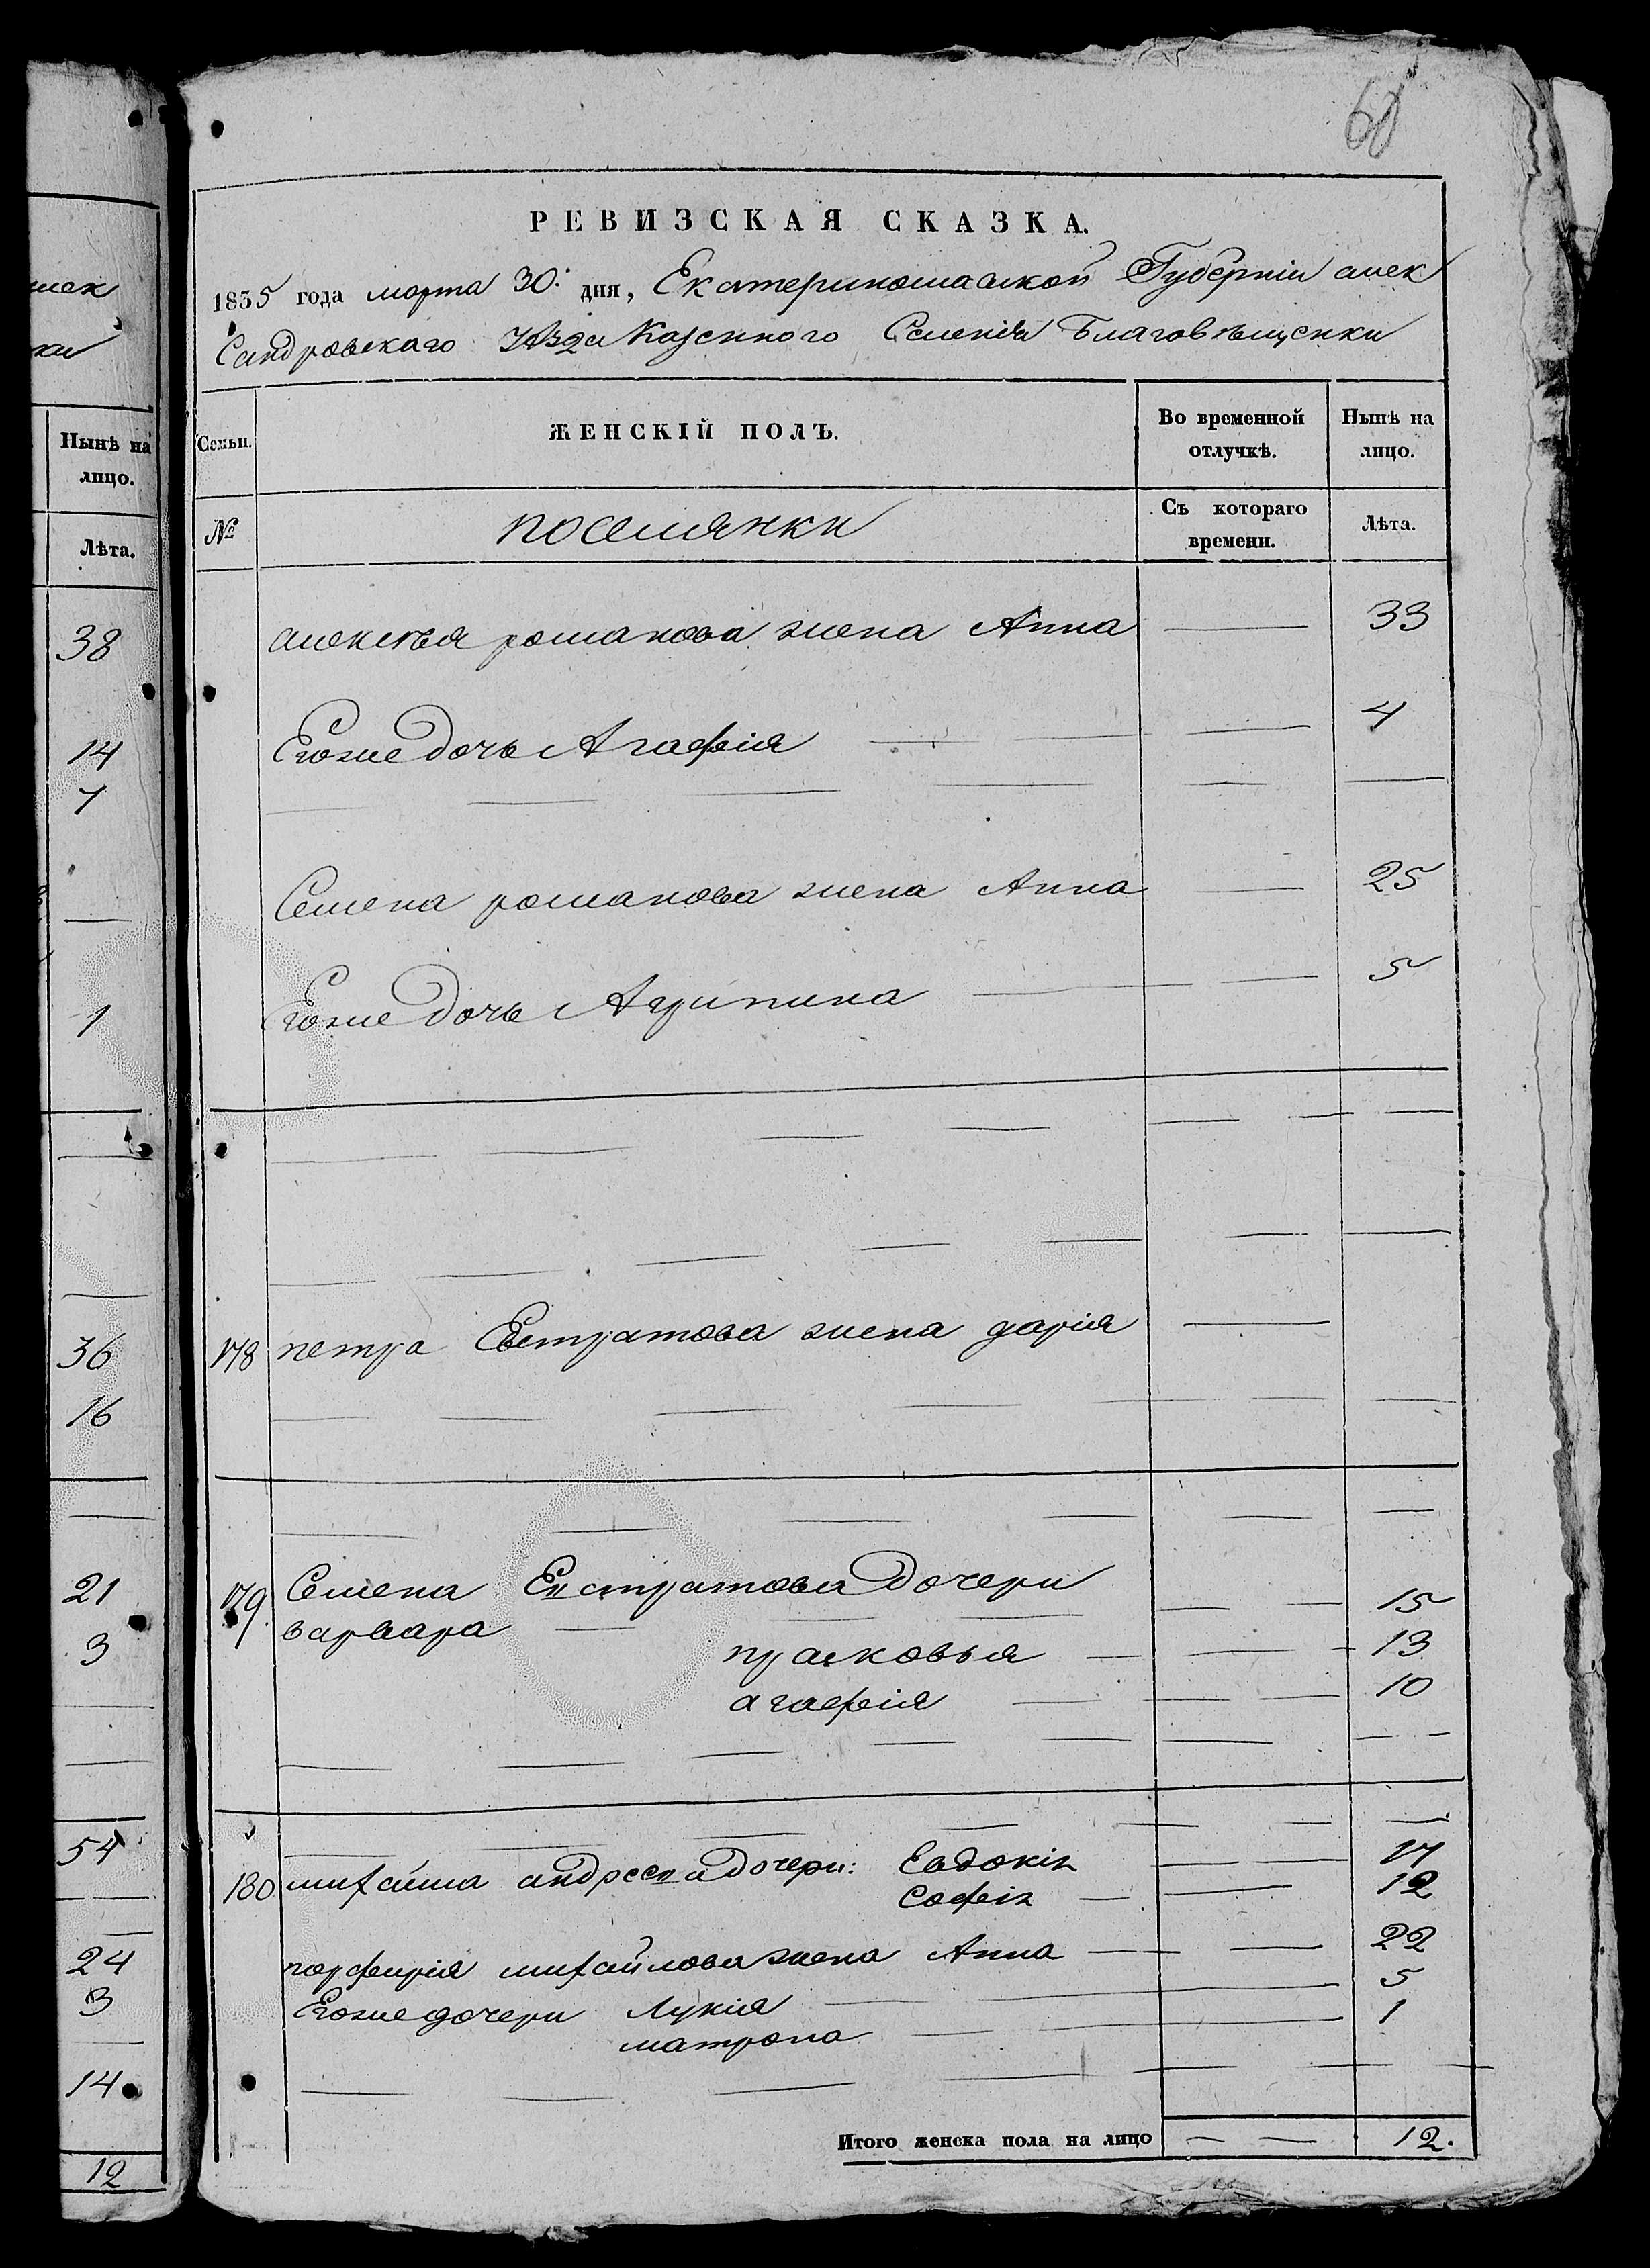 60
РЕВИЗСКАЯ СКАЗКА.
1835 года марта 30. дня, Екатеринославской Губерніи алек
сандровскаго уѣзда Казенного Селенія Благовѣщенки
Семьи.
ЖЕНСКІЙ ПОЛЪ.
Во временной отлучкѣ.
Нынѣ на лицо.
№
поселянки
Съ котораго времени.
Лѣта.
алексѣя романова жена Анна 33
Егоже дочь Агафія 4
Семена романова жена Анна 25
Егоже дочь Агрипина 5
178 петра Евстратова жена дарія
179. Семена Евстратова дочери
варвара 15
прасковья 13
агафія 10
180 михайла андреева дочери: Евдокія 17
Софія 12
порфирія михайлова жена Анна 22
Егоже дочери Лукія 5
матрона 1
Итого женска пола на лицо 12.
алек
ки
Нынѣ на
лицо.
Лѣта.
38
14
7
1
36
16
21
3
54
24
3
14
12